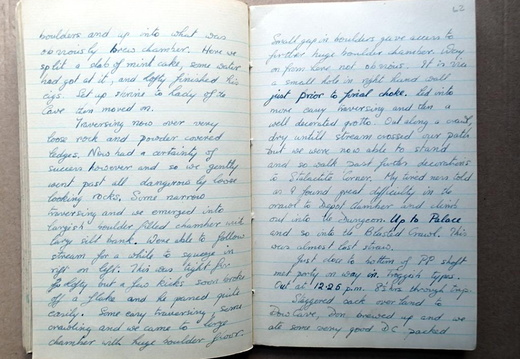 boulders and up into what was
obviously brew chamber. Here we
split a slab of mint cake, some water
had got at it, and lofty finished his
cigs. Set up shrine to lady of the
Cave then moved on.
Traversing now over very
loose rock and powder covered
ledges. Now had a certainty of
success however and so we gently
went past all dangerously loose
looking rocks. Some narrow
traversing and we emerged into
largish boulder filled chamber with
large silt bank. Were able to follow
stream for a while to squeeze in
rift on left. This was tight for
lofty but a few kicks soon broke
off a flake and he passed quite
easily. Some easy traversing, some
crawling and we came to large
chamber with huge boulder floor.
62
Small gap in boulders gave access to
further huge boulder chamber. Way
on from here not obvious. It is via
a small hole in right hand wall
just prior to final choke. Led into
more easy traversing and then a
well decorated grotto. Out along a
dry uphill stream crossed our path
but we were now able to stand
and so walk past further decorations
to Stalactite Corner. My tired legs told
as I found great difficulty in the
crawl to Depot chamber and climb
out into the Dungeon. Up to Palace
and so into the Blasted Crawl. This
was almost last straw.
Just close to bottom of PP shaft
met party on way in. Doggish types.
Out at 12:25 p.m. 8½ hrs through trip.
Staggered back over land to
Dow Cave, Don brewed up and we
ate some very good DC packed